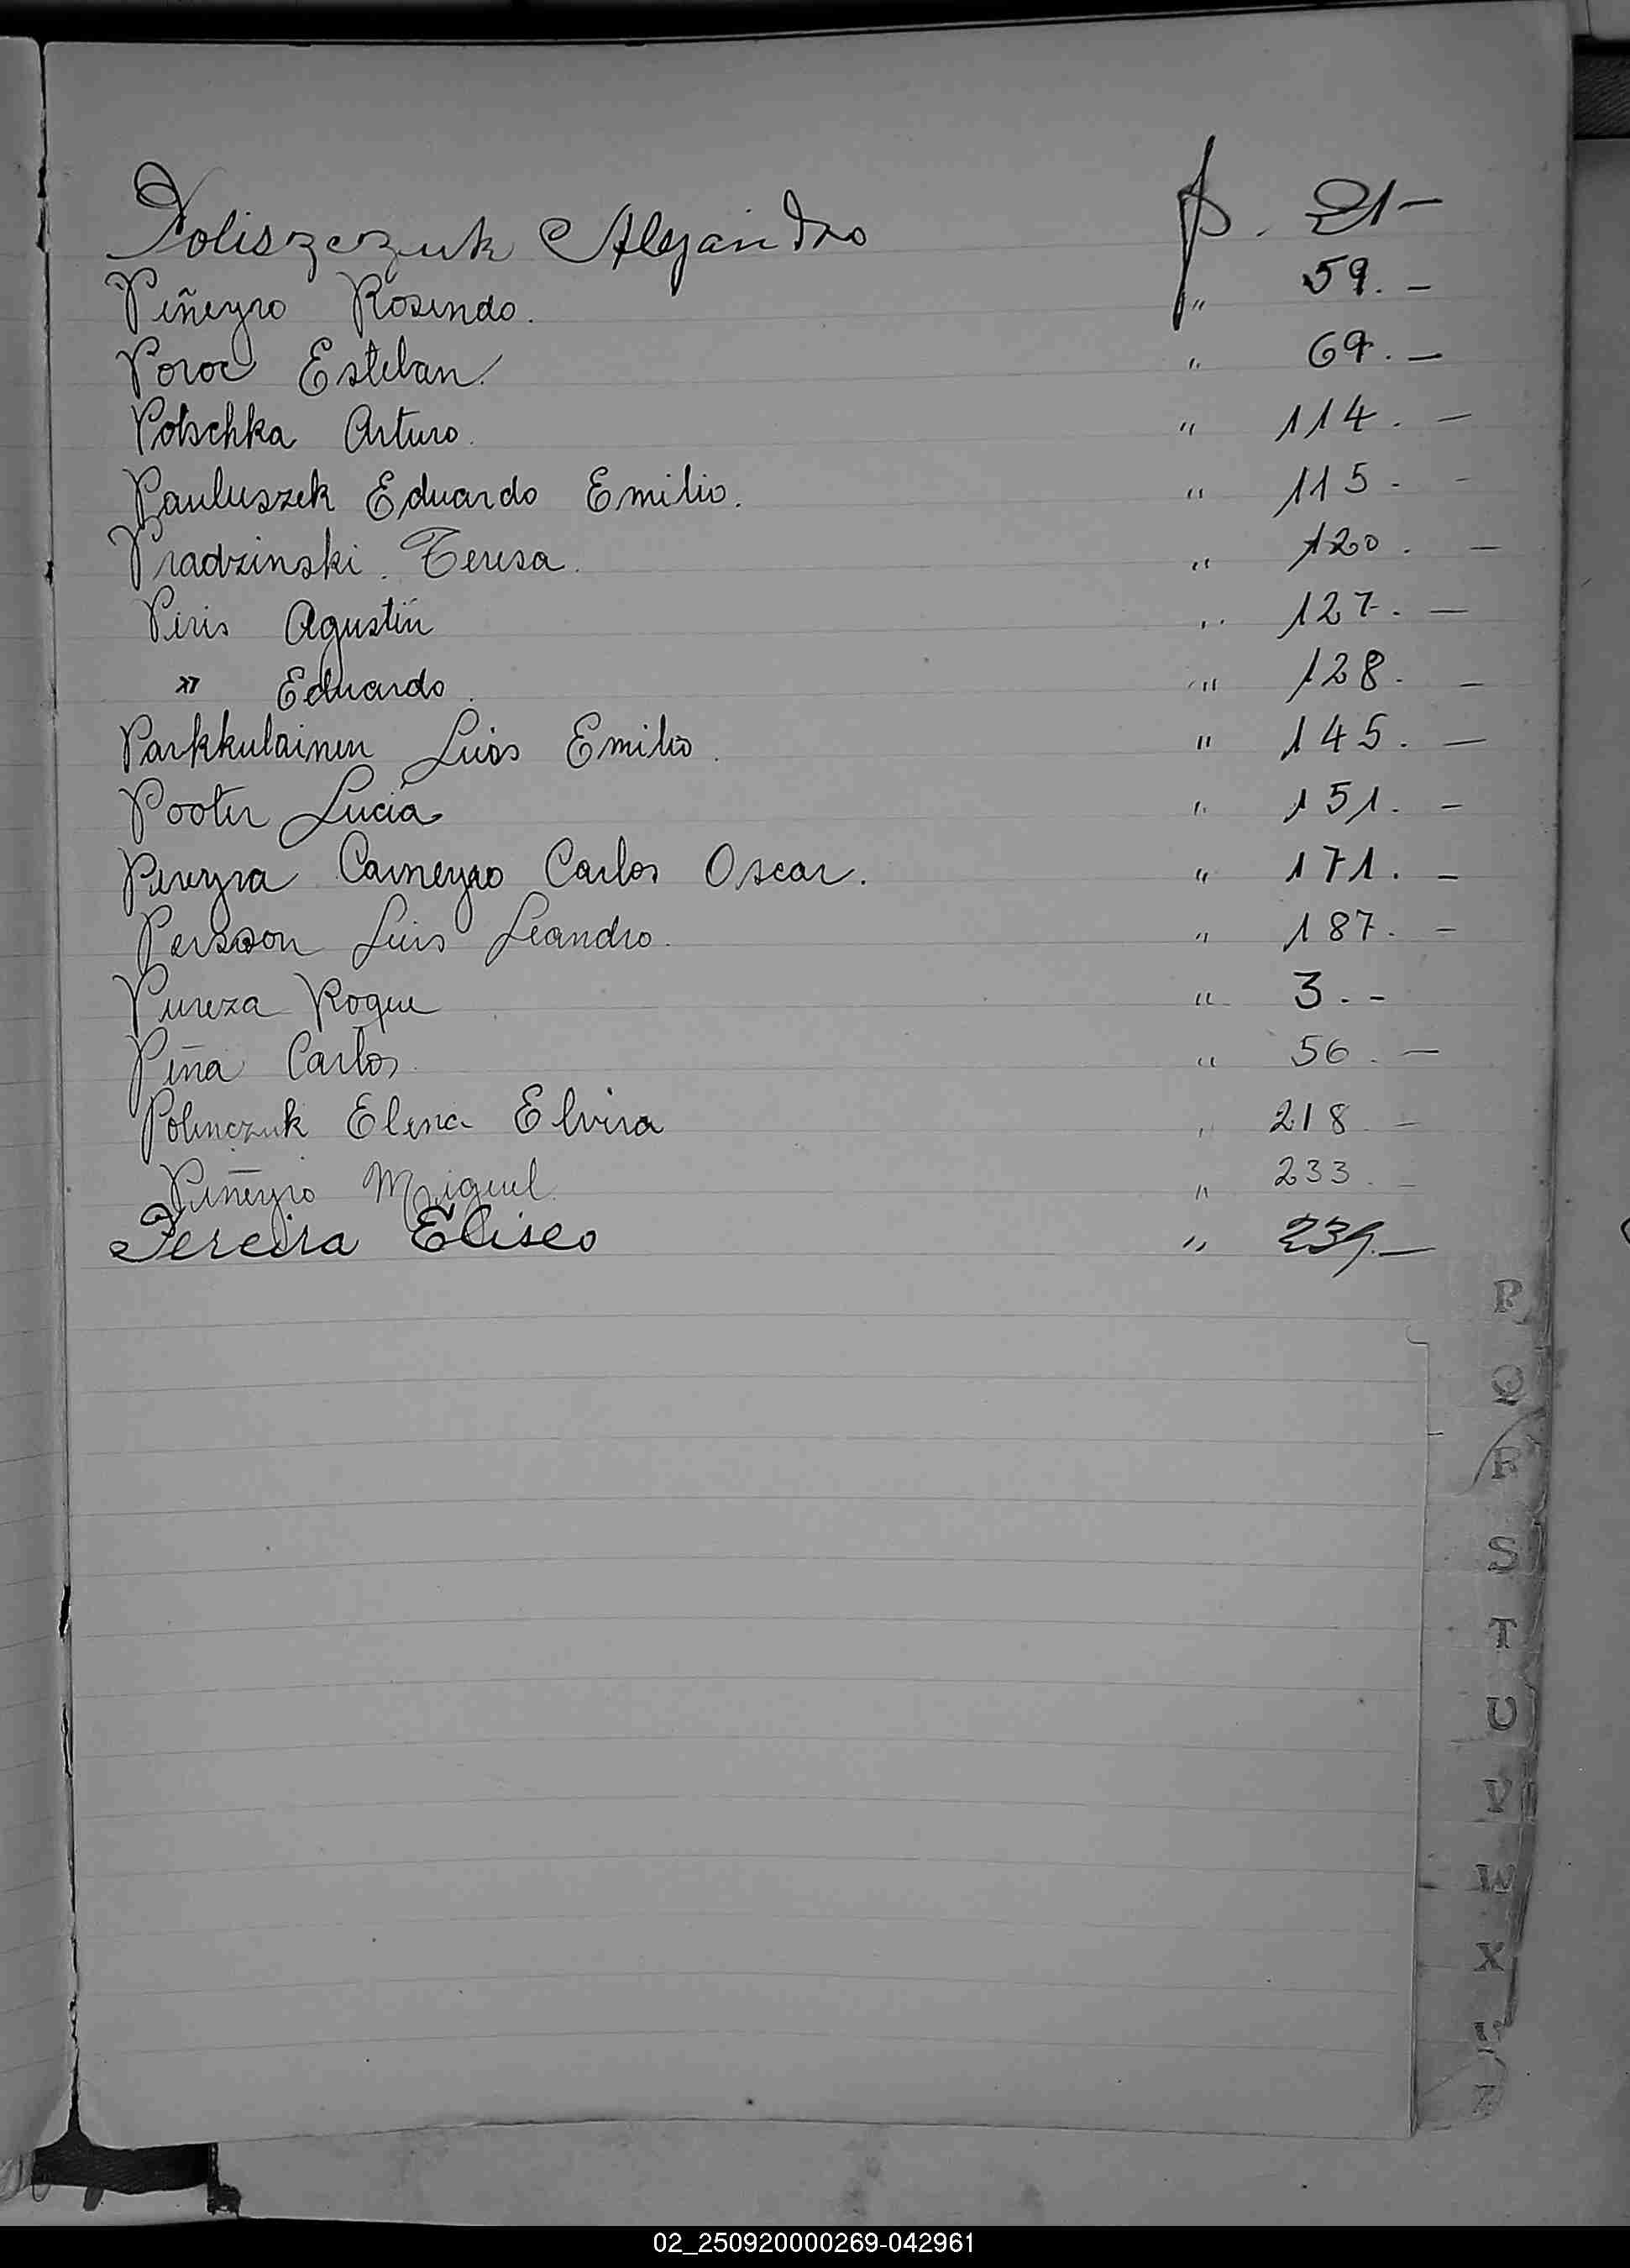 Poliszczuk Alejandro f. 21 —
Piñeyro Rosendo. " 59. —
Poroc Esteban. " 69. —
Potschka Arturo. " 114. —
Pauluszek Eduardo Emilio. " 115. -
Pradzinski. Teresa. " 120. —
Piris Agustín " 127. —
" Eduardo. " 128. —
Parkkulainen Luis Emilio. " 145. —
Pooter Lucía " 151. —
Pereyra Carneyro Carlos Oscar. " 171. —
Persson Luis Leandro. " 187. —
Pureza Roque " 3. -
Piña Carlos. " 56. —
Polinczuk Elena Elvira " 218 —
Piñeyro Miguel. " 233. —
Pereira Eliseo " 239. —
P
Q
R
S
T
U
V
W
X
Z
02_250920000269-042961